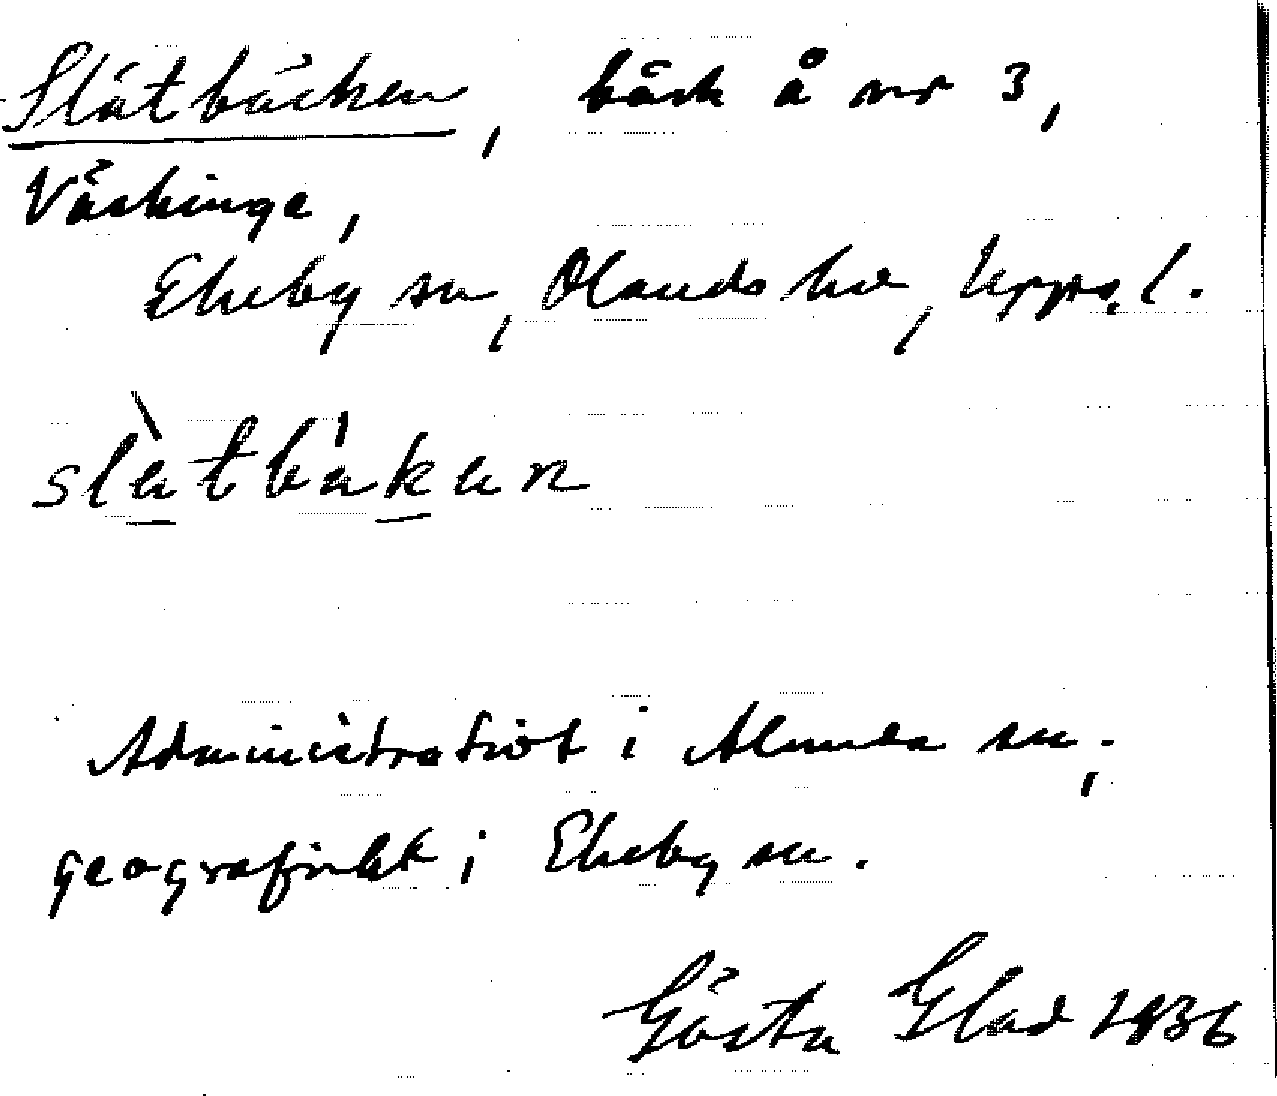 Slätbäcken, bäck å nr 3,
Väskinge,
Ekeby sn, Olands hd, Upps. l.
slàtbàkan
Administrativt i Alunda sn.,
geografiskt i Ekeby sn.
Gösta Glad 1936